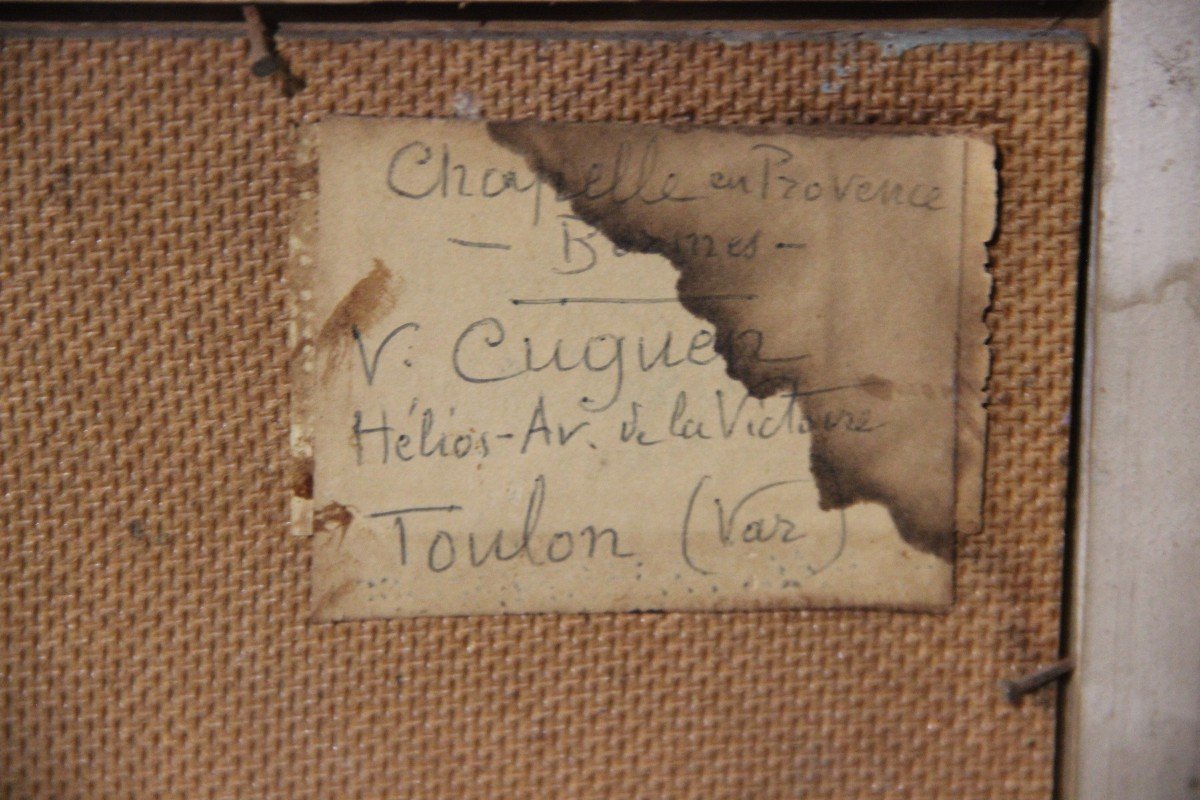 Chapelle en Provence
- Bormes -
V. Cuguen
Hélios - Av. de la Victoire
Toulon (Var)